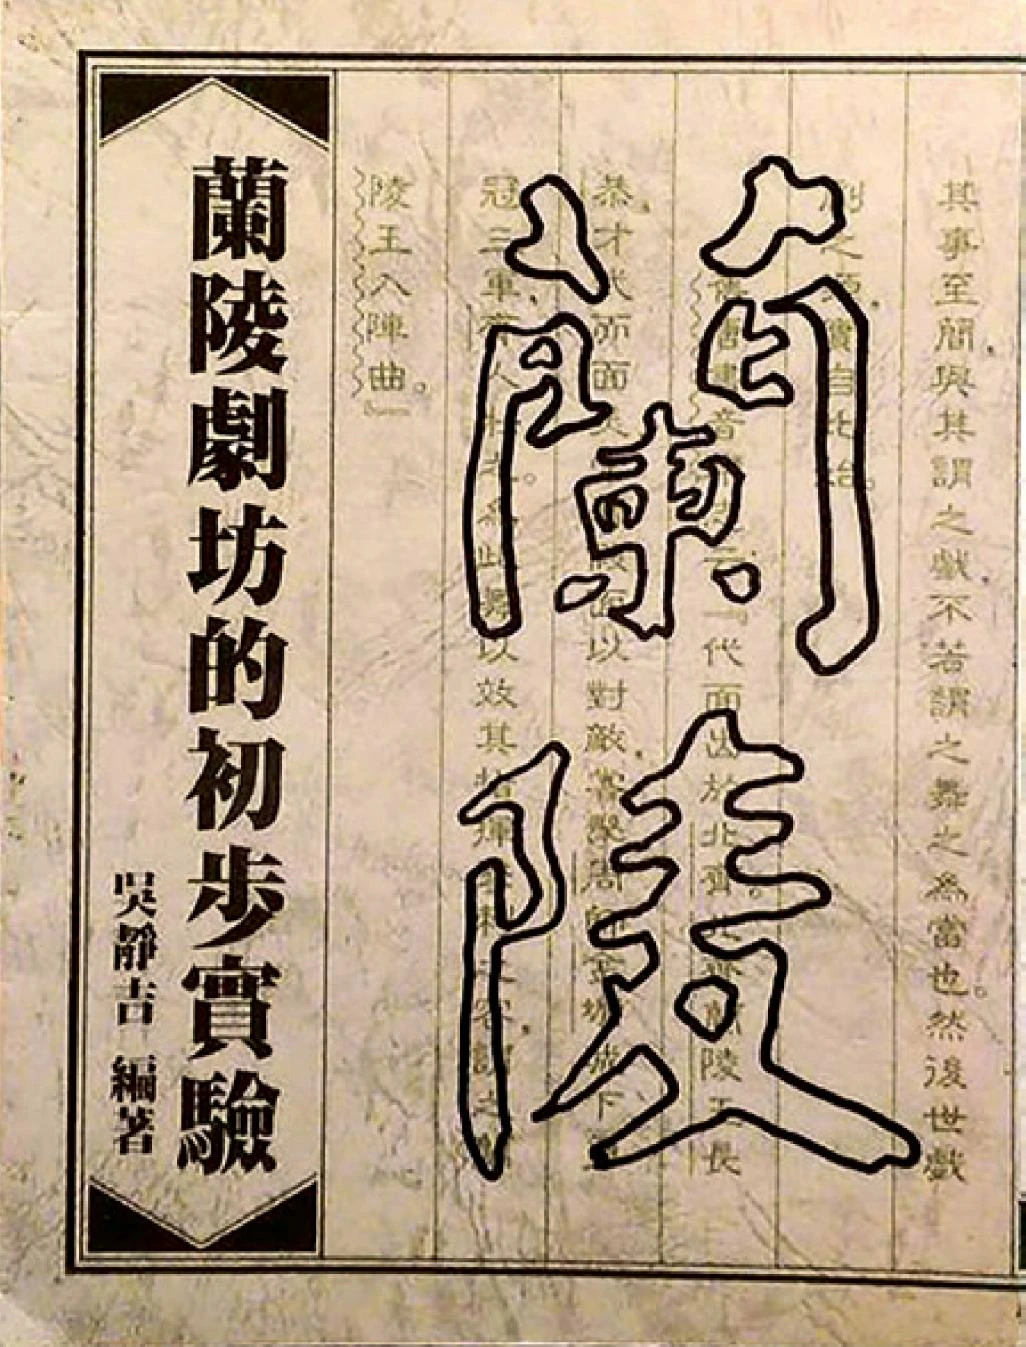 其事至簡，與其謂之戲不若謂之舞之為當也。然後世戲
劇之源，實自此始。
舊唐書音「代面出於北齊蘭陵王長
恭，才武而面美面以對敵，嘗擊周師金墉城下
冠三軍，齊人壯之為此舞以效其指揮擊刺之容，謂之蘭
陵王入陣曲。』
蘭陵
蘭陵劇坊的初步實驗
吳靜吉 編著